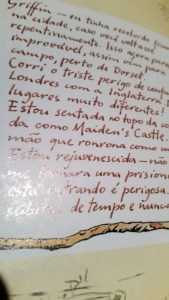 Griffin — eu tinha receio de ficar
na cidade, caso você voltasse
repentinamente. Isso agora parece
improvável, assim
campo, perto de Dorset.
Corri o triste perigo de confu
Londres com a Inglaterra
lugares muito diferentes!
Estou sentada no topo da co
da como Maiden's Castle.
mão que ronrona como um
Estou rejuvenescida — não
me tornara uma prisione
está entrando é perigosa.
de tempo e nunca